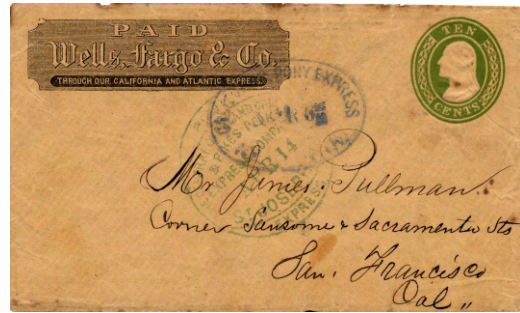 PAID
Wells, Fargo & Co.
THROUGH OUR CALIFORNIA AND ATLANTIC EXPRESS.
TEN
CENTS
PONY EXPRESS
EXPRESS COMPANY
14
ST JOSEPH
Mr James Pullman
Corner Sansome & Sacramento Sts
San. Francisco
Cal "